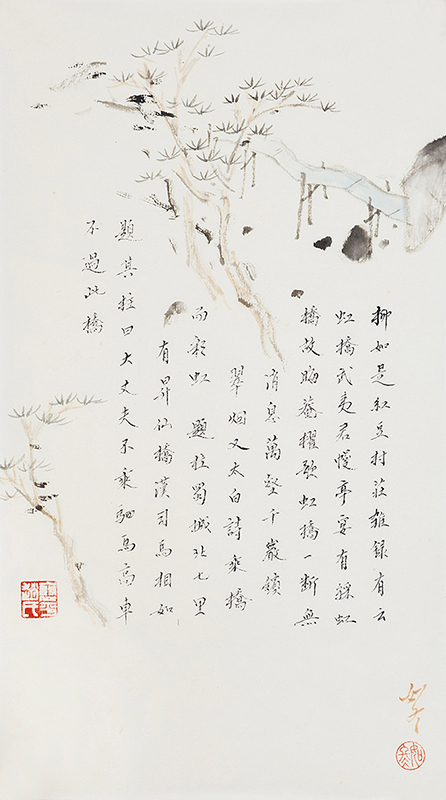 柳如是紅豆村莊雜錄有云
虹橋武夷君幔亭宴有綵虹
橋故晦菴櫂歌虹橋一斷無
消息萬壑千巖鎖
翠烟又太白詩乘橋
而彩虹 題柱蜀城北七里
有昇仙橋漢司馬相如
題其柱曰大丈夫不乘駟馬高車
不過此橋